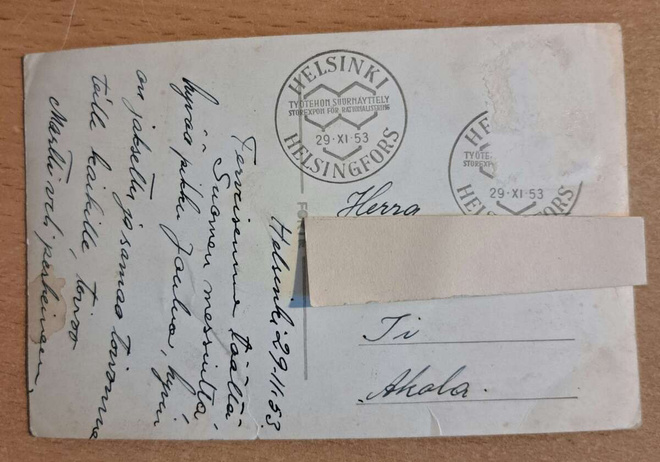 Helsinki 29-11-53
Terveisemme täältä
Suomen messuilta,
hyvää pikku Joulua, hyvin
on jakseltu ja samaa toivomme
teille kaikille, toivoo
Martti veli perheineen.
HELSINKI
TYÖTEHON SUURNÄYTTELY
STOREXPON FÖR RATIONALISERING
29·XI·53
HELSINGFORS
HE
TYÖTE
STOREX
29·XI·53
HELSINGFORS
Herra
Ti
Akola.